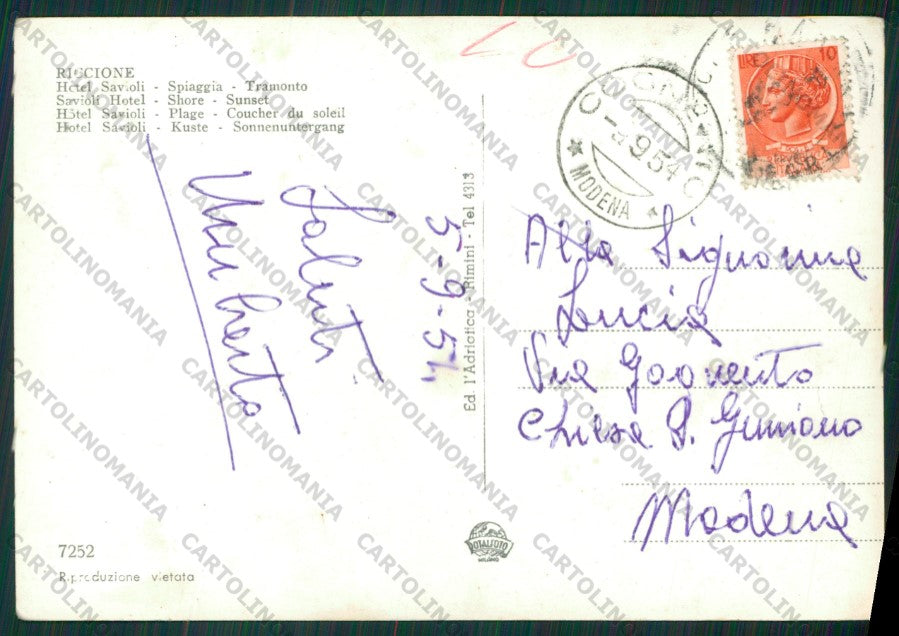 RICCIONE
Hotel Savioli - Spiaggia - Tramonto
Savioli Hotel - Shore - Sunset
Hôtel Savioli - Plage - Coucher du soleil
Hotel Savioli - Kuste - Sonnenuntergang
Saluti
Umberto
5-9-54
Ed. l'Adriatica - Rimini - Tel 4313
LIRE 10
-9.54
MODENA
Alla Signorina
Lucia
Via
Chiesa S. Gimiano
Modena
7252
Riproduzione vietata
ROTALFOTO
MILANO
CARTOLINOMANIA